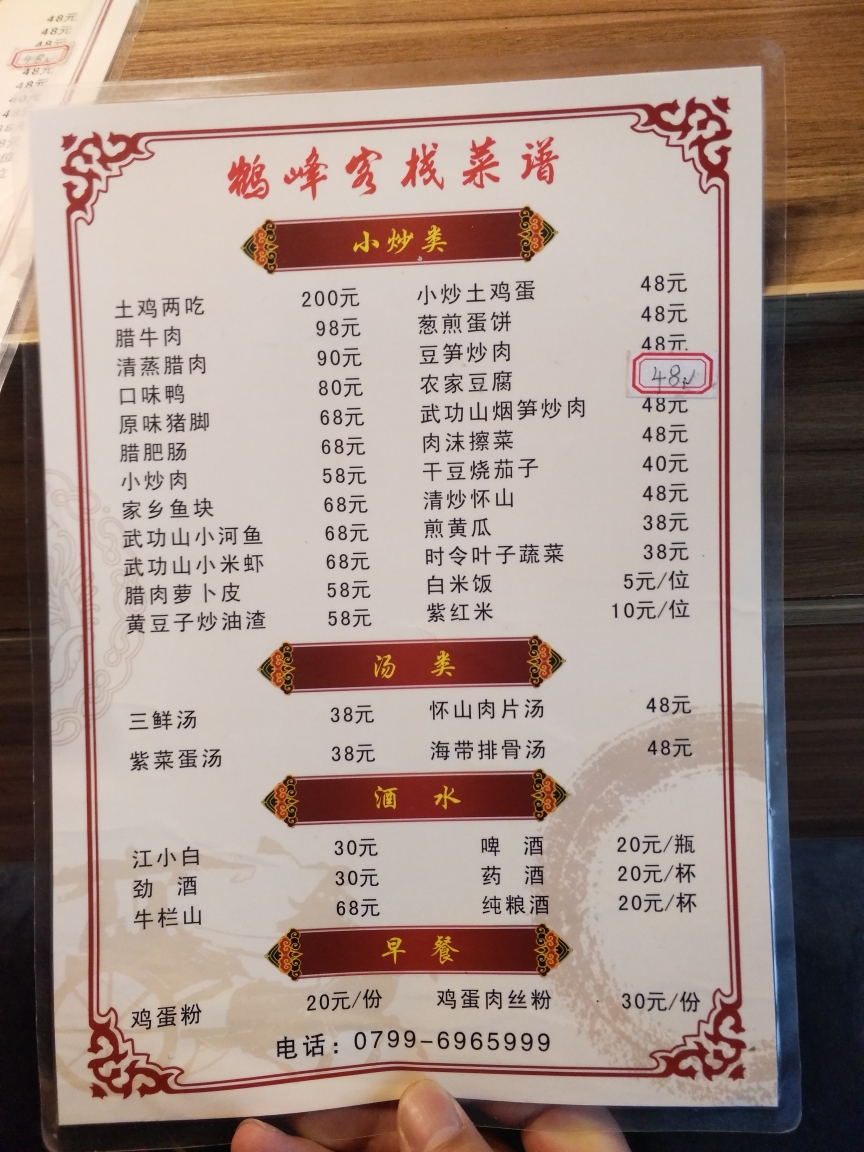 鹤峰客栈菜谱
小炒类
土鸡两吃 200元 小炒土鸡蛋 48元
腊牛肉 98元 葱煎蛋饼 48元
清蒸腊肉 90元 豆笋炒肉 48元
口味鸭 80元 农家豆腐 48元
原味猪脚 68元 武功山烟笋炒肉 48元
腊肥肠 68元 肉沫擦菜 48元
小炒肉 58元 干豆烧茄子 40元
家乡鱼块 68元 清炒怀山 48元
武功山小河鱼 68元 煎黄瓜 38元
武功山小米虾 68元 时令叶子蔬菜 38元
腊肉萝卜皮 58元 白米饭 5元/位
黄豆子炒油渣 58元 紫红米 10元/位
汤 类
三鲜汤 38元 怀山肉片汤 48元
紫菜蛋汤 38元 海带排骨汤 48元
酒 水
江小白 30元 啤 酒 20元/瓶
劲 酒 30元 药 酒 20元/杯
牛栏山 68元 纯粮酒 20元/杯
早 餐
鸡蛋粉 20元/份 鸡蛋肉丝粉 30元/份
电话：0799-6965999
48元
48元
48元
48元
48元